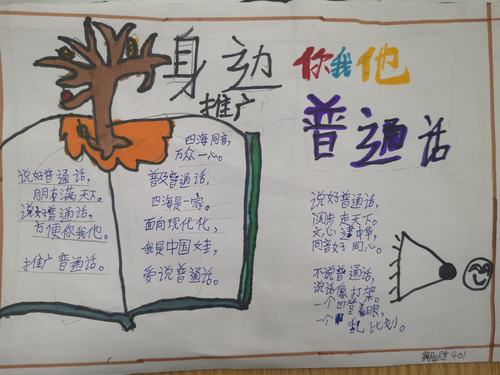 身边 你我他
推广
普通话
说好普通话,
朋友满天下。
说好普通话,
方便你我他。
推广普通话。
四海同音,
万众一心。
普及普通话,
四海是一家。
面向现代化,
我是中国娃,
爱说普通话。
说好普通话,
阔步走天下。
文心建中华,
同音好同心。
不说普通话,
说话像打架。
一个四登着眼,
一个乱比划。
401